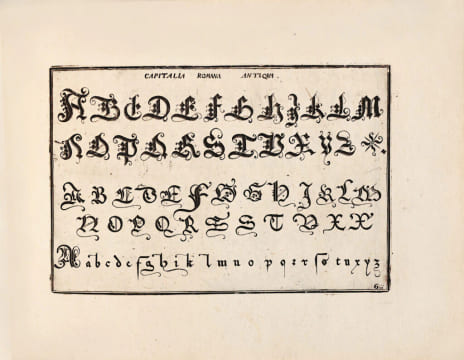 CAPITALIA ROMANA ANTIQUA.
A B C D E F G H I K L M
N O P Q R S T V X Y Z
A B C D E F G H I K L M
N O P Q R S S T V X X
A a b c d e f g h i k l m n o p q r r s s t u x y z
6